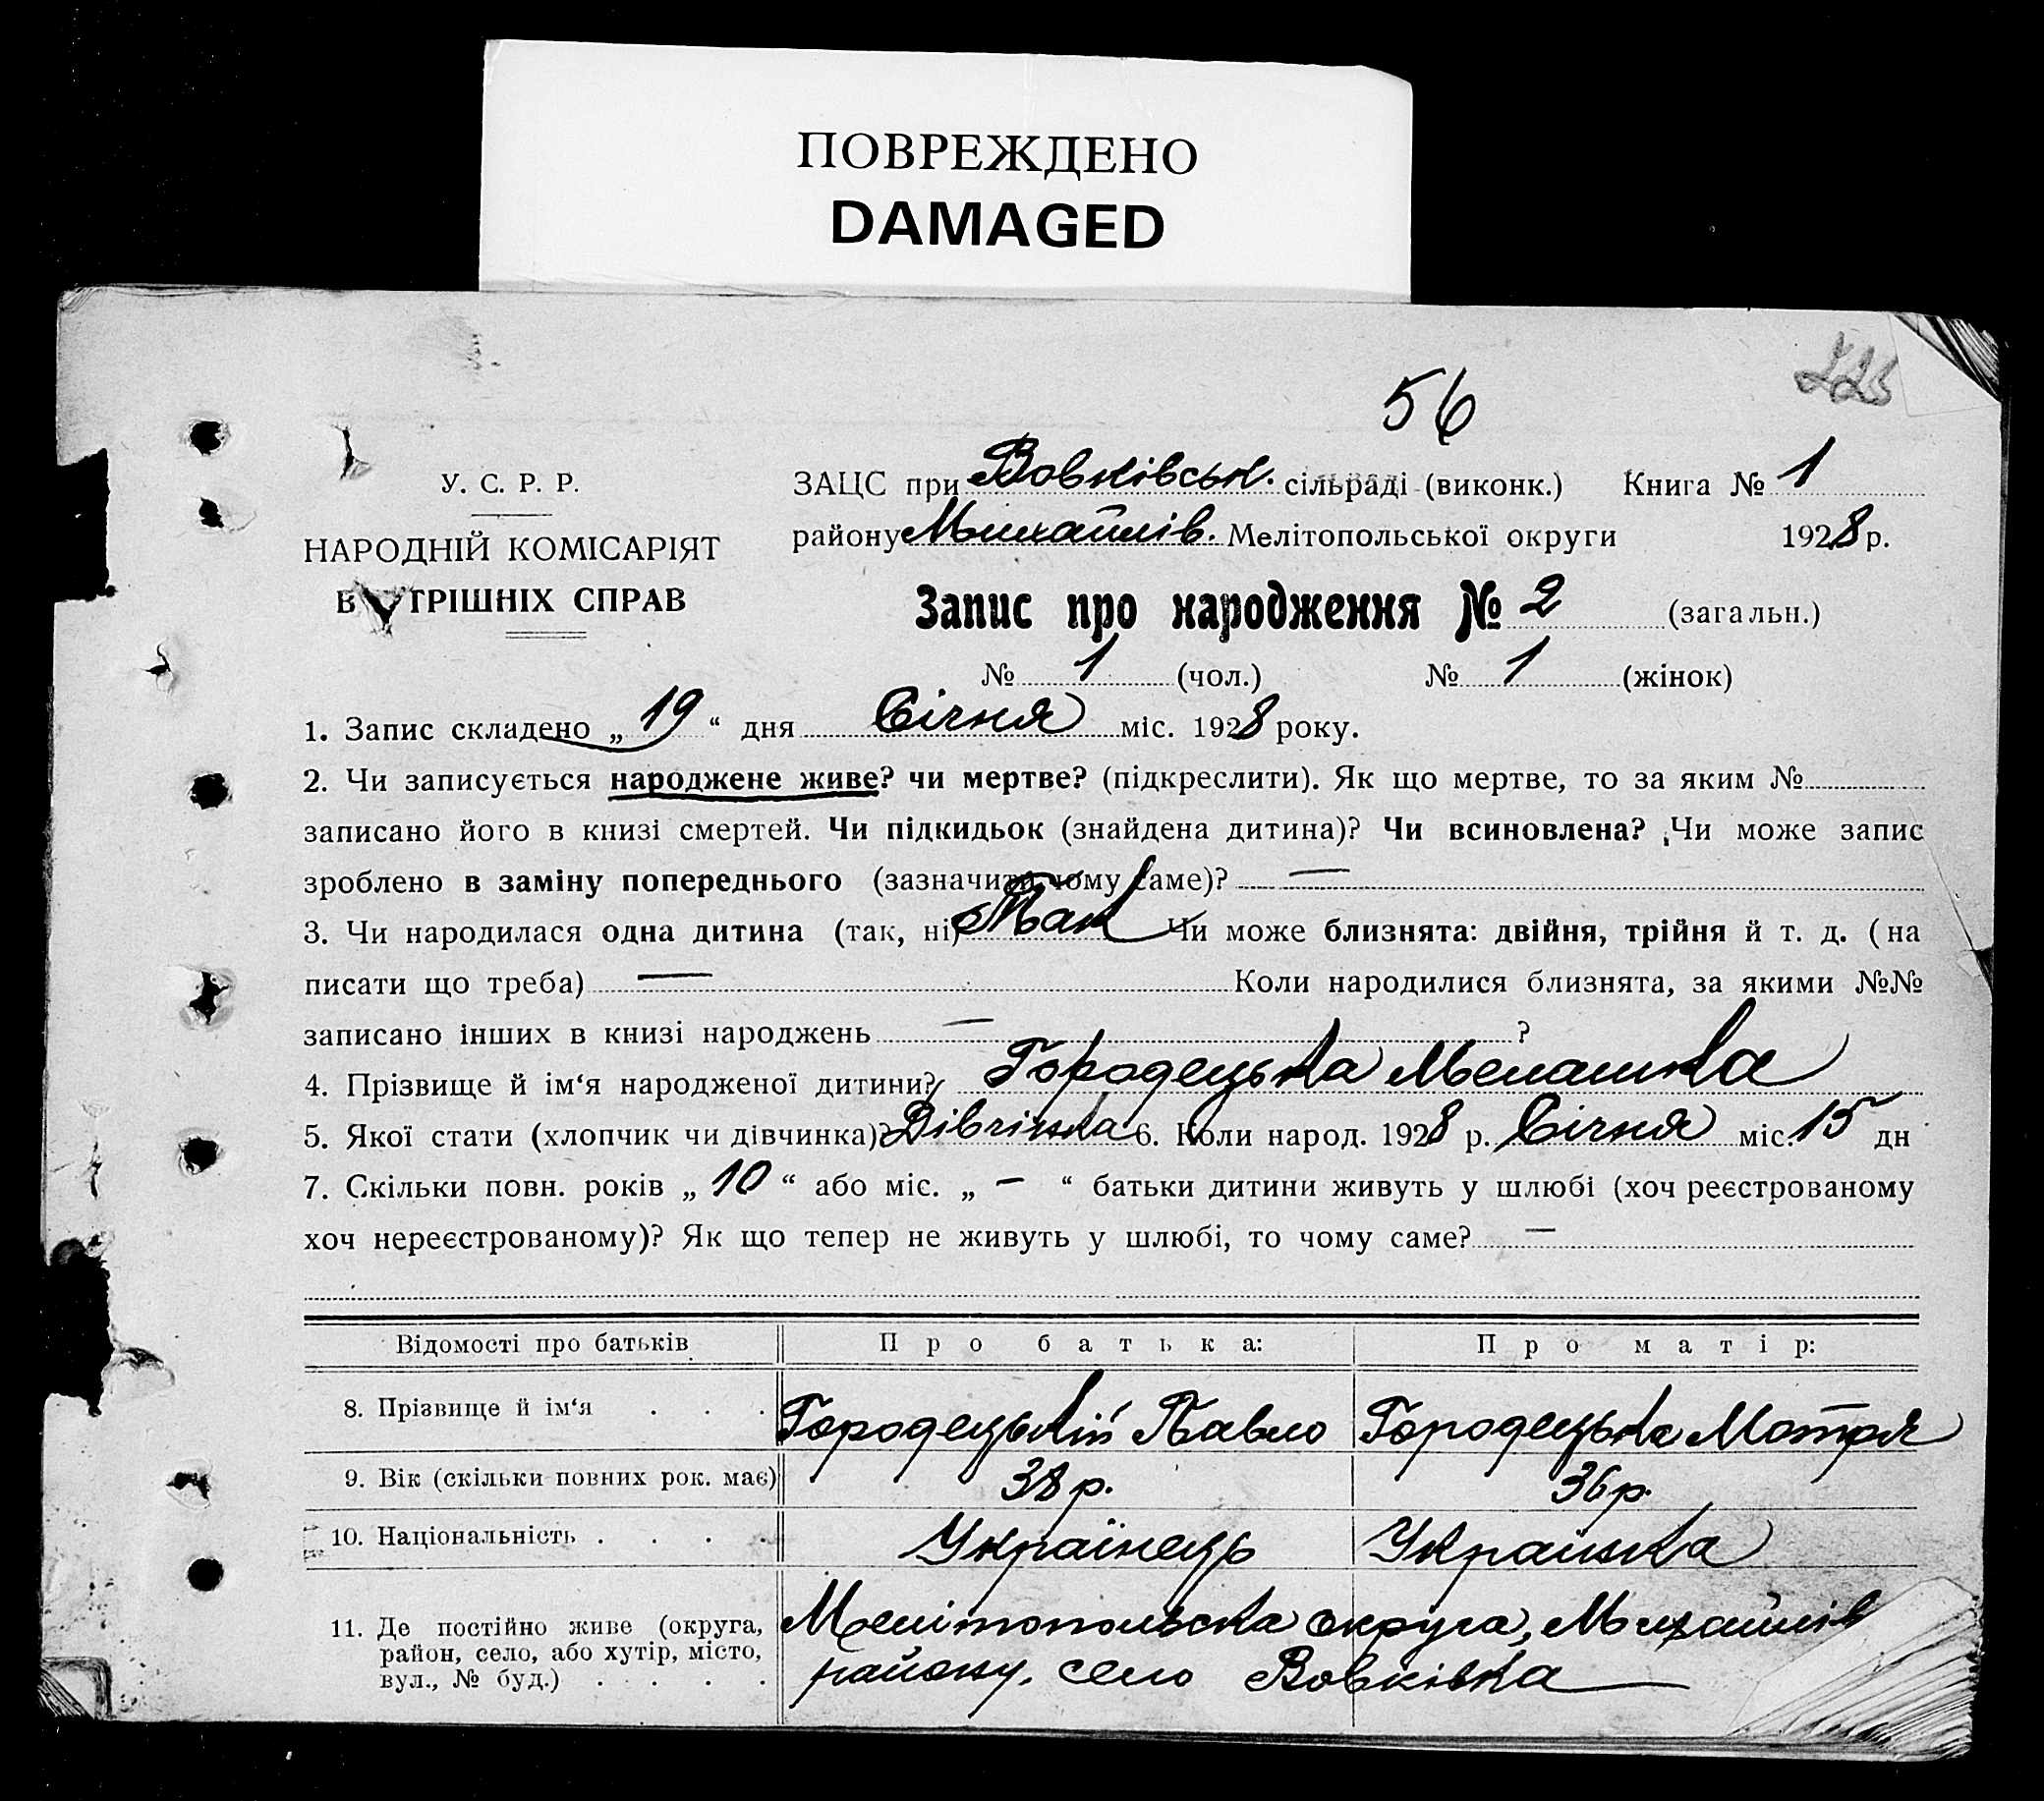 ПОВРЕЖДЕНО
DAMAGED
56
У. С. Р. Р.
НАРОДНІЙ КОМІСАРІЯТ
В ТРІШНІХ СПРАВ
ЗАЦС при Вовківськ. сільраді (виконк.) Книга № 1
району Михайлів. Мелітопольської округи 1928 р.
Запис про народження № 2 (загальн.)
№ 1 (чол.) № 1 (жінок)
1. Запис складено „ 19 “ дня Січня міс. 1928 року.
2. Чи записується народжене живе? чи мертве? (підкреслити). Як що мертве, то за яким №
записано його в книзі смертей. Чи підкидьок (знайдена дитина)? Чи всиновлена? Чи може запис
зроблено в заміну попереднього (зазначити чому саме)? —
3. Чи народилася одна дитина (так, ні) Так Чи може близнята: двійня, трійня й т. д. (на
писати що треба) — Коли народилися близнята, за якими №№
записано інших в книзі народжень — ?
4. Прізвище й ім‘я народженої дитини? Городецька Мелашка
5. Якої стати (хлопчик чи дівчинка)? Дівчінка 6. Коли народ. 1928 р. Січня міс. 15 дн
7. Скільки повн. років „ 10 “ або міс. „ — “ батьки дитини живуть у шлюбі (хоч реєстрованому
хоч нереєстрованому)? Як що тепер не живуть у шлюбі, то чому саме? —
Відомості про батьків Про батька: Про матір:
8. Прізвище й ім‘я . . . Городецький Павло Городецька Мотря
9. Вік (скільки повних рок. має) 38 р. 36 р.
10. Національність . . . . Українець Українка
11. Де постійно живе (округа,
район, село, або хутір, місто,
вул., № буд.) . . . .
Мелітопольска округа, Михайлів
району, село Вовківка